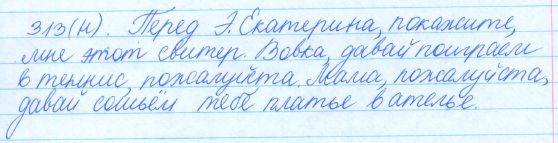 313(н). Перед Э. Екатерина, покажите,
мне этот свитер. Вовка, давай поиграем
в теннис, пожалуйста. Мама, пожалуйста,
давай сошьём тебе платье в ателье.